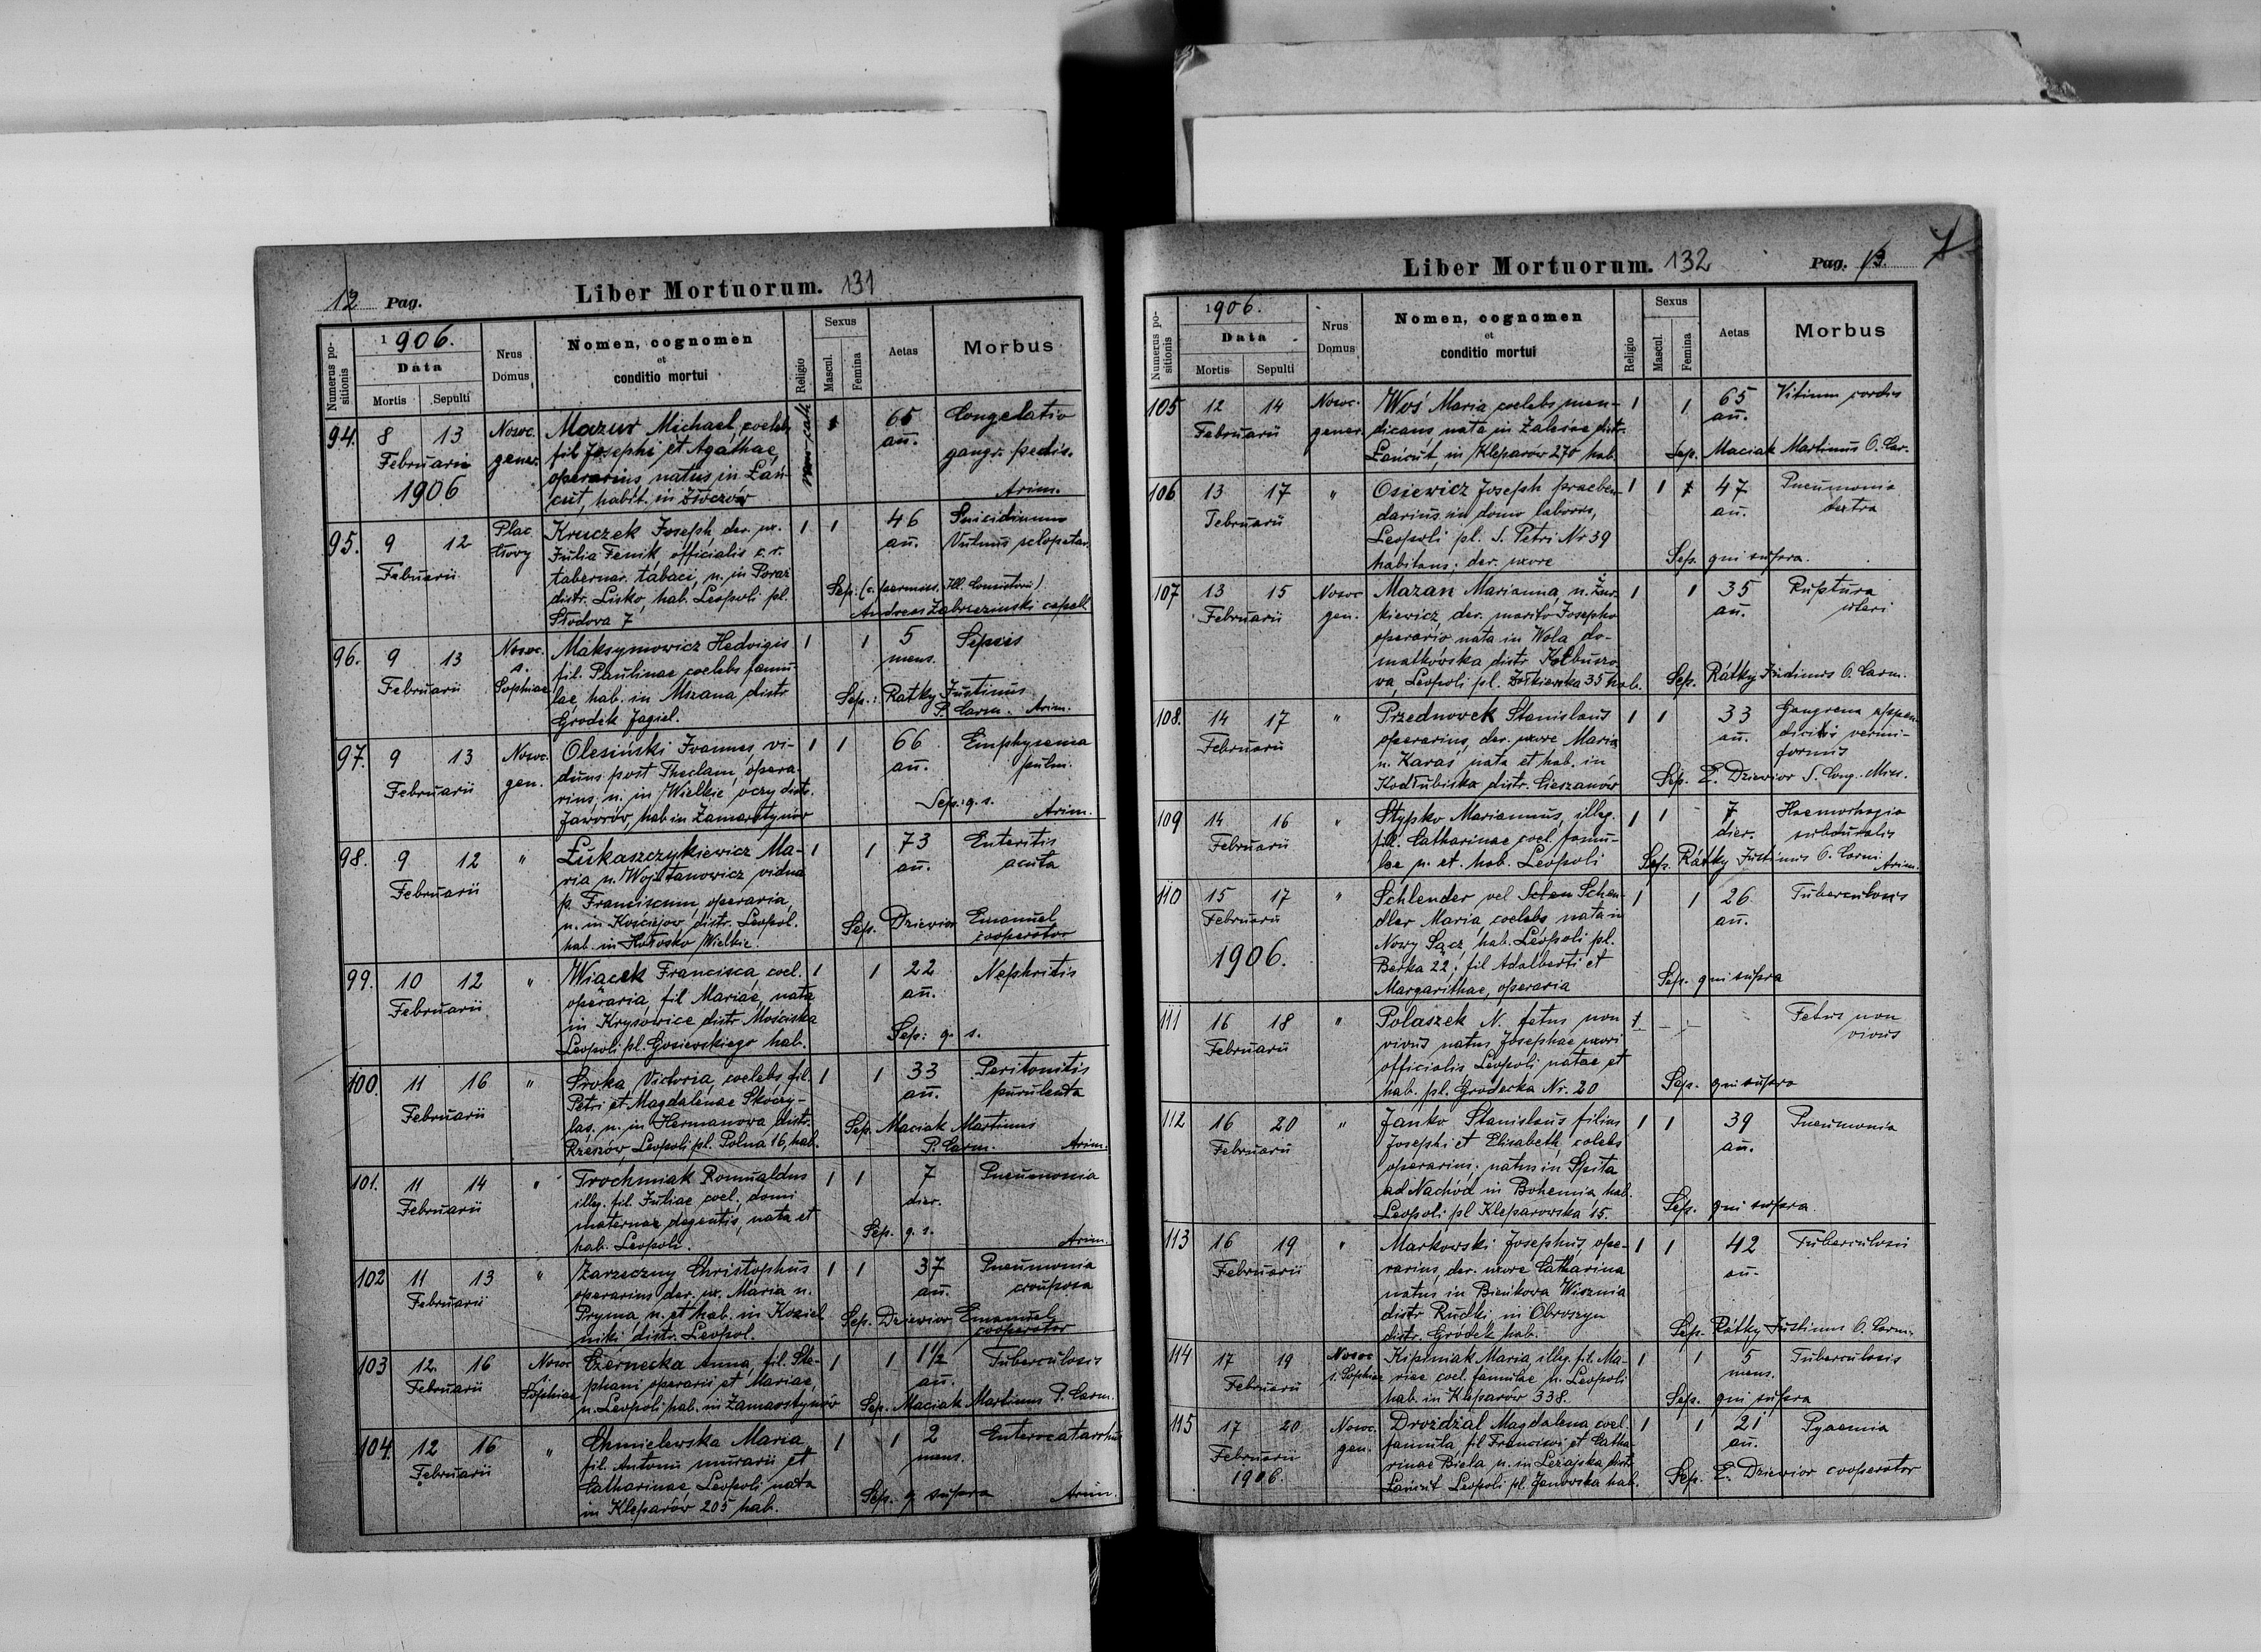 12 Pag.
Liber Mortuorum. 131
Numerus positionis
1906.
Data
Mortis
Sepulti
Nrus Domus
Nomen, cognomen
et
conditio mortui
Religio
Sexus
Mascul.
Femina
Aetas
Morbus
94. 8 13 Nosoc. Mazur Michael, coelebs 65 Congelatio
Februarii gener. fil. Josephi et Agathae, an. gangr. pedis.
1906 operarius natus in Łań-
cut, habit. in Złoczów Arim.
95. 9 12 Plac Kruczek Joseph, der. ux. 1 1 46 Suicidium
Februarii Julia Fenik, officialis c. r. an. Vulnus sclopetar.
tabernar. tabaci, n. in Poraż
distr. Lisko, hab. Leopoli pl. Sep: (c. permiss. Ill. Consistorii)
Słodova 7 Andreas Zabrzezinski capell.
96. 9 13 Nosoc. Maksymowicz Hedvigis 1 1 5 Sepsis
Februarii s. Sophiae fil. Paulinae coelebs famu- mens.
lae hab. in Mszana distr. Sep.: Ratky Justinus
Grodek Jagiel. P. Carm. Arim.
97. 9 13 Nosoc. Olesiński Joannes, vi- 1 1 66 Emphysema
Februarii gen. duus post Theclam, opera- an. pulm.
rius, n. in Wielkie oczy distr. Sep: q. s.
Jaworów, hab. in Zamarstynów Arim.
98. 9 12 " Łukaszczykiewicz Ma- 1 1 73 Enteritis
Februarii ria n. Wojtanowicz vidua an. acuta
p. Franciscum, operaria,
n. in Kościejow distr. Leopol. Sep. Dziewior Emanuel
hab. in Hołosko Wielkie. cooperator
99. 10 12 " Wiącek Francisca, coel. 1 1 22 Nephritis
Februarii operaria, fil. Mariae, nata an.
in Krysowice distr. Mościska
Leopoli pl. Gosiewskiego hab. Sep: q. s.
100. 11 16 " Sroka Victoria, coelebs, fil. 1 1 33 Peritonitis
Februarii Petri et Magdalenae Skoczy- an. purulenta
las, n. in Hermanowa distr. Sep. Maciak Martinus
Rzeszów, Leopoli pl. Polna 16, hab. P. Carm. Arim.
101. 11 14 " Trochmiak Romualdus 1 1 7 Pneumonia
Februarii illeg. fil. Juliae coel., domi dier.
maternae degentis, nata et Sep. q. s.
hab. Leopoli. Arim.
102 11 13 " Zarzeczny Christophus 1 1 37 Pneumonia
Februarii operarius der. ux. Maria n. an. crouposa
Pryma, n. et hab. in Koziel- Sep. Dziewior Emanuel
niki distr. Leopol. cooperator
103 12 16 Nosoc. Czernecka Anna, fil. Ste- 1 1 1½ Tuberculosis
Februarii s. Sophiae phani operarii et Mariae, an.
n. Leopoli hab. in Zamarstynów Sep. Maciak Martinus P. Carm.
104. 12 16 " Chmielewska Maria 1 1 2 Enterocatarrhus
Februarii fil. Antonii murarii et mens.
Catharinae, Leopoli nata Sep. q. supra
in Kleparów 205 hab. Arim.
Liber Mortuorum. 132
Pag. 13.
Numerus positionis
1906.
Data
Mortis
Sepulti
Nrus Domus
Nomen, cognomen
et
conditio mortui
Religio
Sexus
Mascul.
Femina
Aetas
Morbus
105 12 14 Nosoc. Woś Maria, coelebs, men- 1 1 65 Vitium cordis
Februarii gener. dicans, nata in Zalesie distr. an.
Łańcut, in Kleparów 270 hab. Sep. Maciak Martinus O. Car.
106 13 17 " Osiewicz Joseph, praeben- 1 1 47 Pneumonia
Februarii darius in domo laboris, an. dextra
Leopoli pl. S. Petri Nr 39
habitans; der. uxore Sep. qui supra.
107 13 15 Nosoc Mazan Marianna, n. Żur- 1 1 35 Ruptura
Februarii gen. kiewicz, der. marito Josepho an. uteri
operario nata in Wola do-
matkowska distr. Kolbuszo-
wa, Leopoli pl. Żółkiewska 35 hab. Sep. Rátky Justinus O. Carm.
108. 14 17 " Przednowek Stanislaus 1 1 33 Gangrena appen-
Februarii operarius, der. uxore Maria an. dicitis vermi-
n. Karaś nata et hab. in formis
Kodłubiska distr. Cieszanów Sep. E. Dziewior S. Cong. Miss.
109 14 16 " Stypko Mariannus, illeg. 1 1 7 Haemorhagia
Februarii fil. Catharinae coel. famu- dier. subduralis
lae n. et. hab. Leopoli Sep. Rátky Justinus O. Carm. Arim.
110 15 17 " Schlender vel Schen-
Februarii dler Maria, coelebs, nata in 1 1 26 Tuberculosis
1906. Nowy Sącz, hab. Leopoli pl. an.
Berka 22; fil Adalberti et
Margarithae, operaria Sep. qui supra
111 16 18 " Polaszek N. fetus non Fetus non
Februarii vivus natus Josephae uxori vivus
officialis Leopoli natae et
hab. pl. Grodecka Nr. 20 Sep. qui supra
112 16 20 " Janko Stanislaus filius 1 1 39 Pneumonia
Februarii Josephi et Elisabeth, colebs an.
operarius; natus in Spita
ad Nachód in Bohemia, hab.
Leopoli pl Kleparowska 15. Sep. qui supra.
113 16 19 " Markowski Josephus, ope- 1 1 42 Tuberculosis
Februarii rarius, der. uxore Catharina an.
natus in Bieńkowa Wisznia
distr. Rudki in Obroszyn
distr. Gródek hab. Sep. Rátky Justinus O. Carm.
114 17 19 Nosoc Kiperniak Maria, illeg. fil. Ma- 1 1 5 Tuberculosis
Februarii s. Sophiae riae coel. famulae n. Leopoli mens.
hab. in Kleparów 338. Sep. qui supra
115 17 20 Nosoc. Drożdżal Magdalena, coel. 1 1 21 Pyaemia
Februarii gen. famula, fil Francisci et Catha- an.
1906. rinae Biela n. in Leżajska distr.
Łańcut Leopoli pl. Janowska hab. Sep. E. Dziewior cooperator